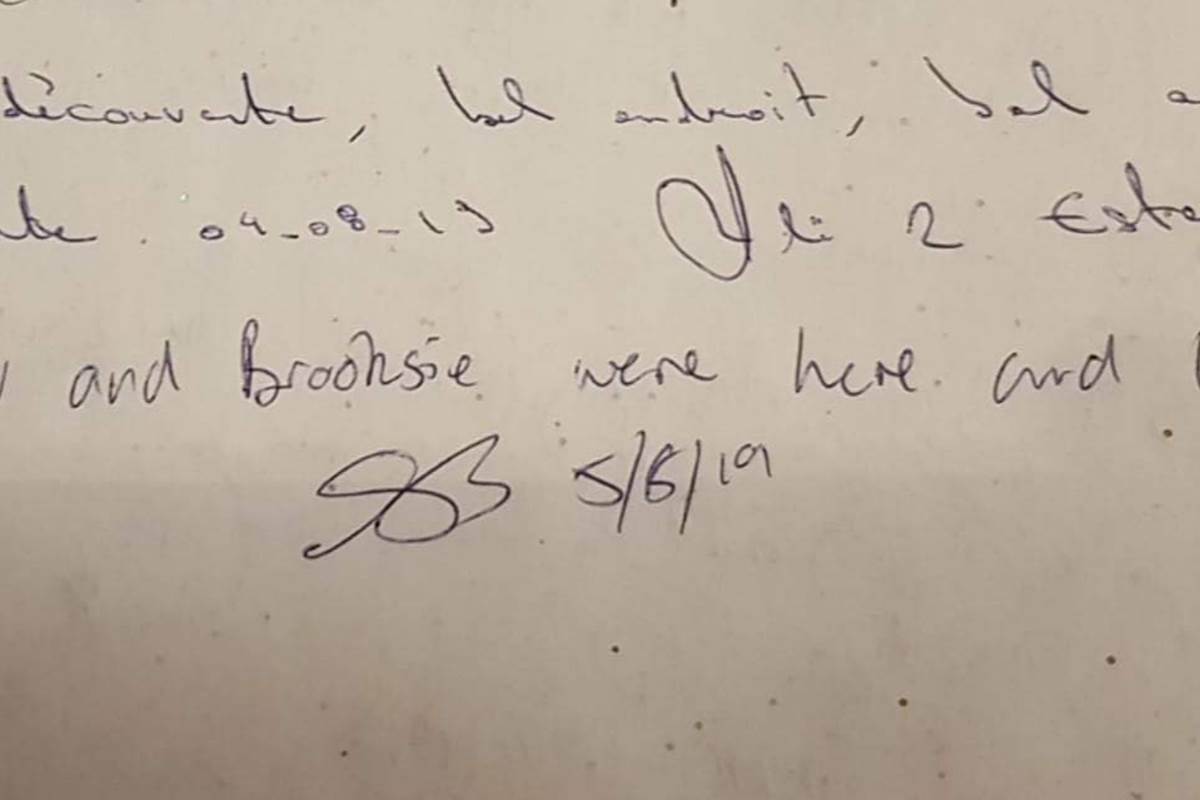 découverte, bel endroit, bel
04-08-19 2
and Brooksie were here and
5/6/19